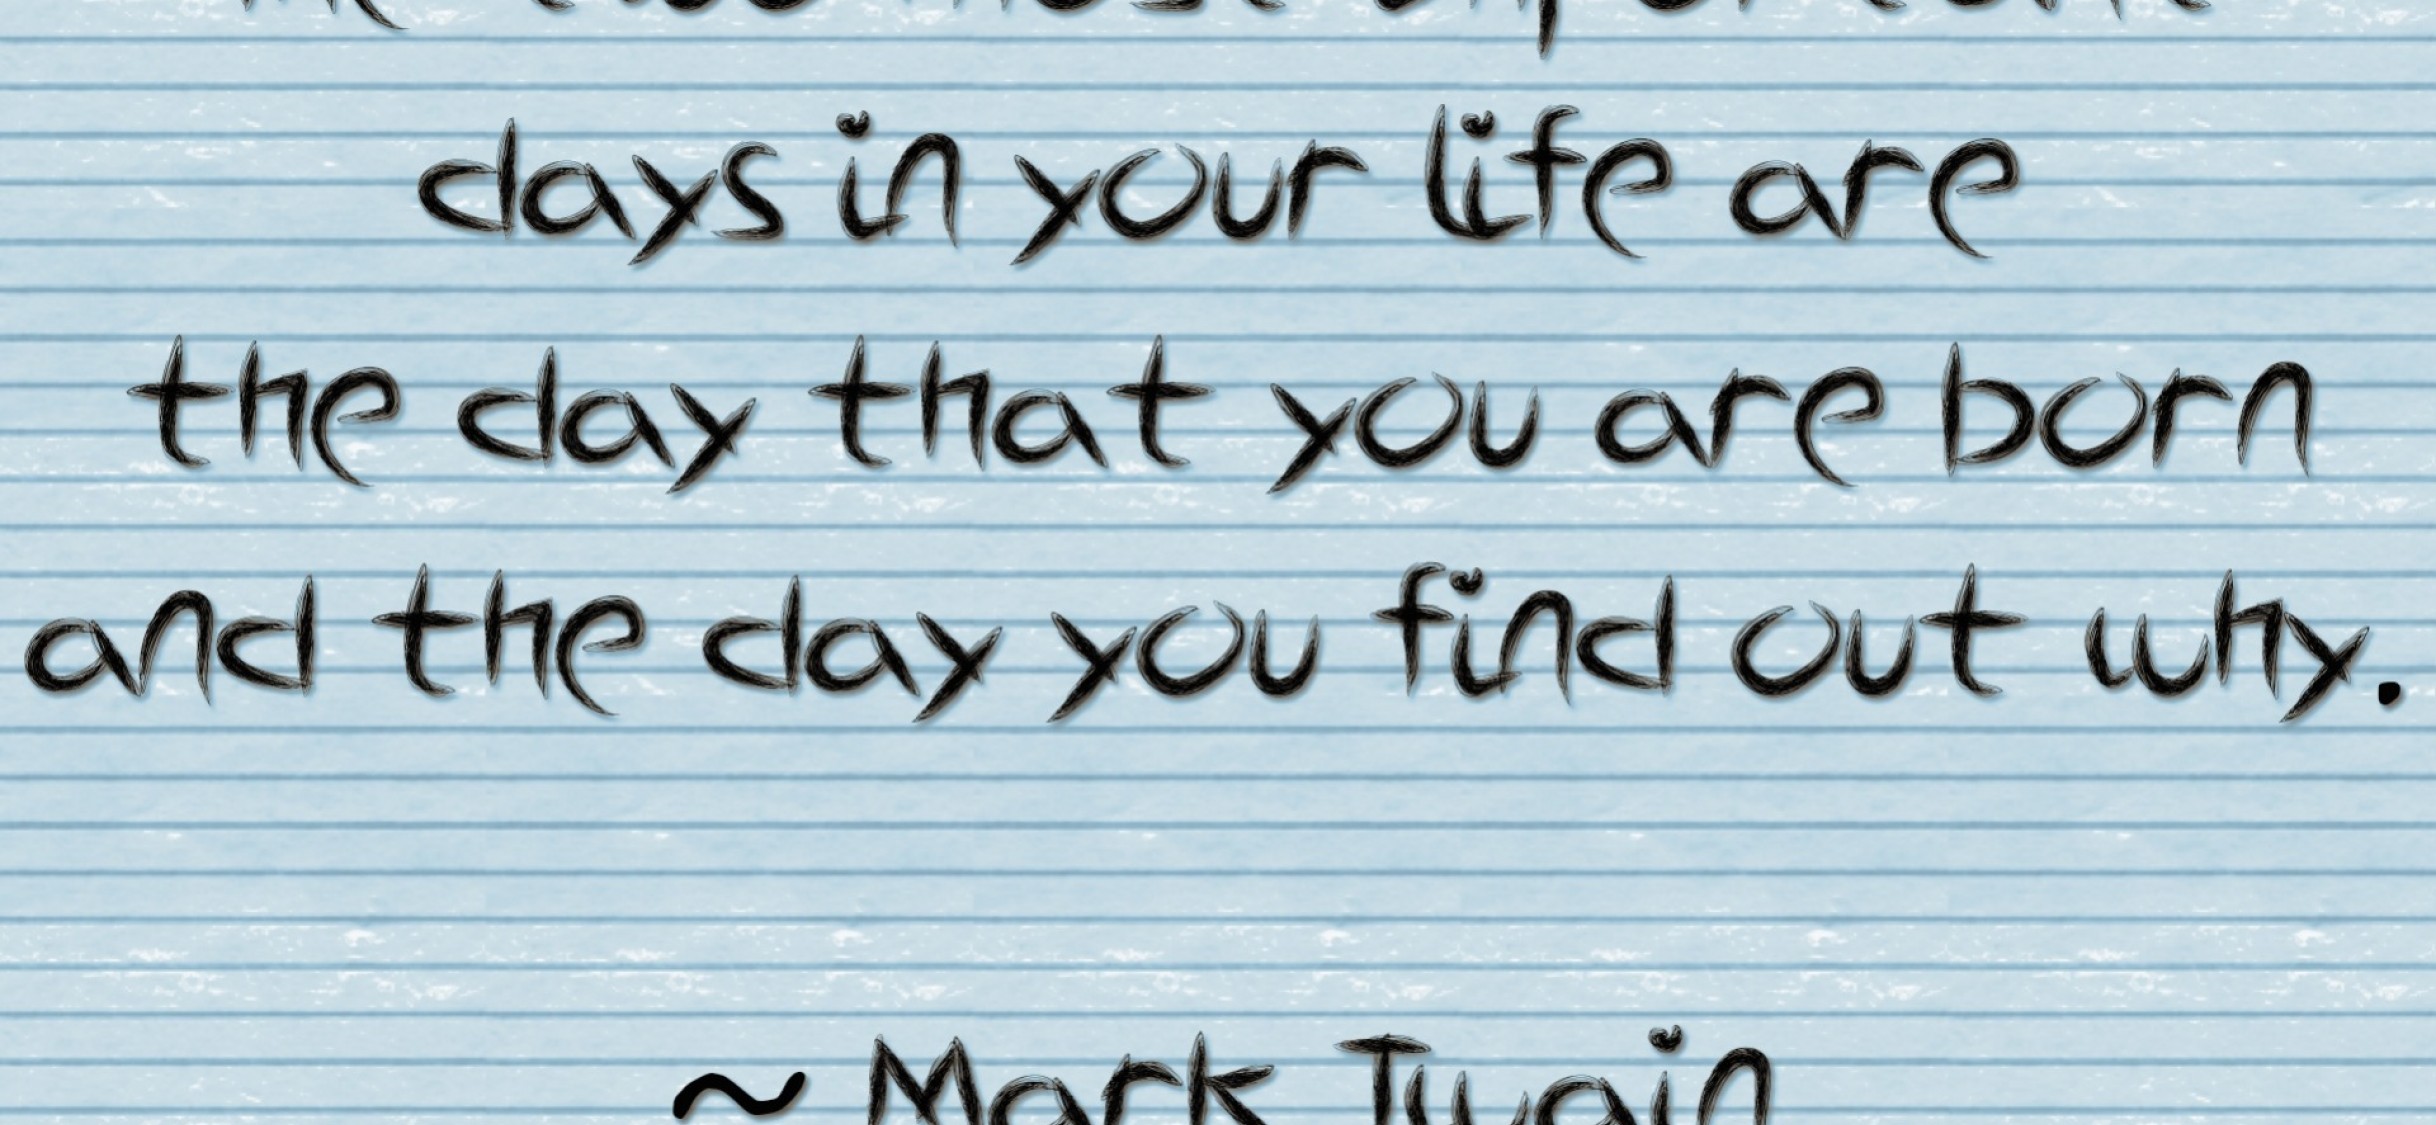 days in your life are
the day that you are born
and the day you find out why.
~ Mark Twain